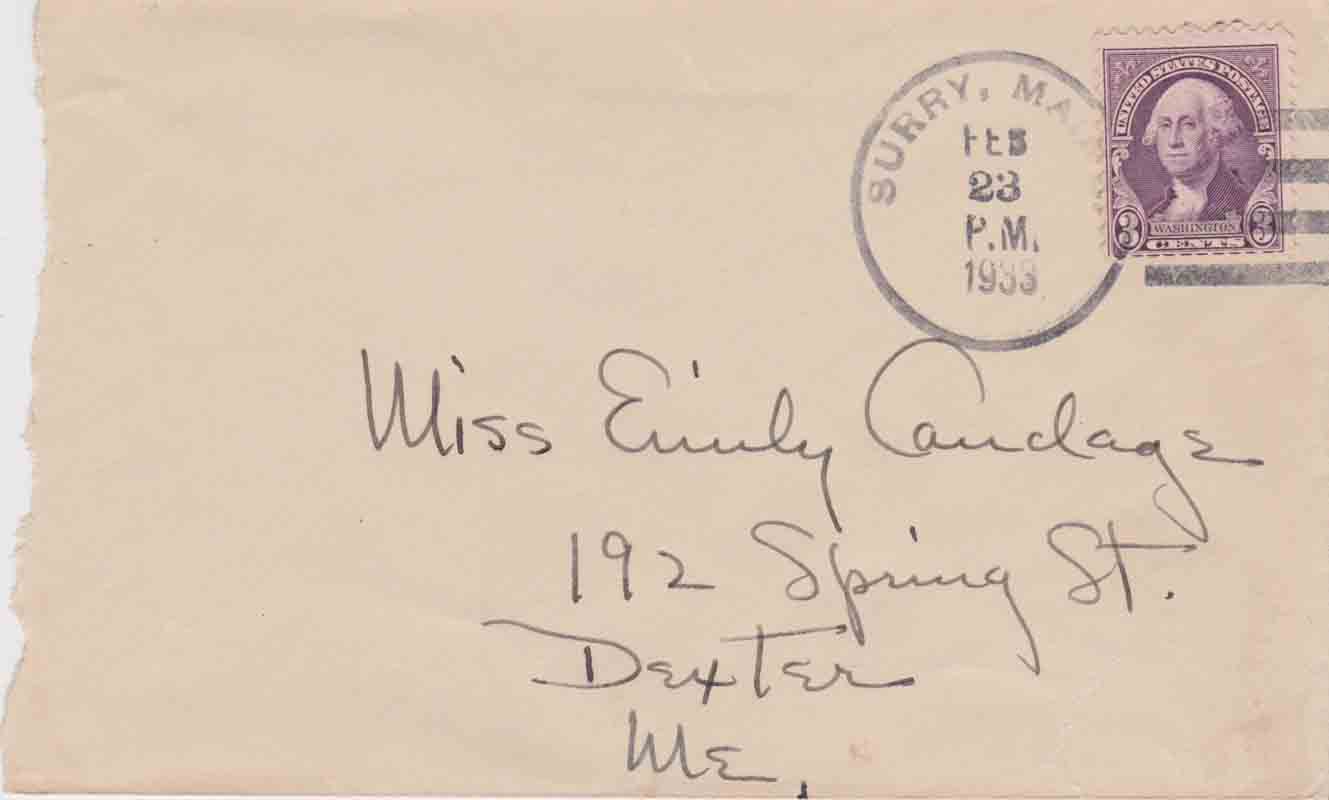 SURRY, MA
FEB
23
P.M.
1933
UNITED STATES POSTAGE
3 WASHINGTON 3
CENTS
Miss Emily Candage
192 Spring St.
Dexter
Me.